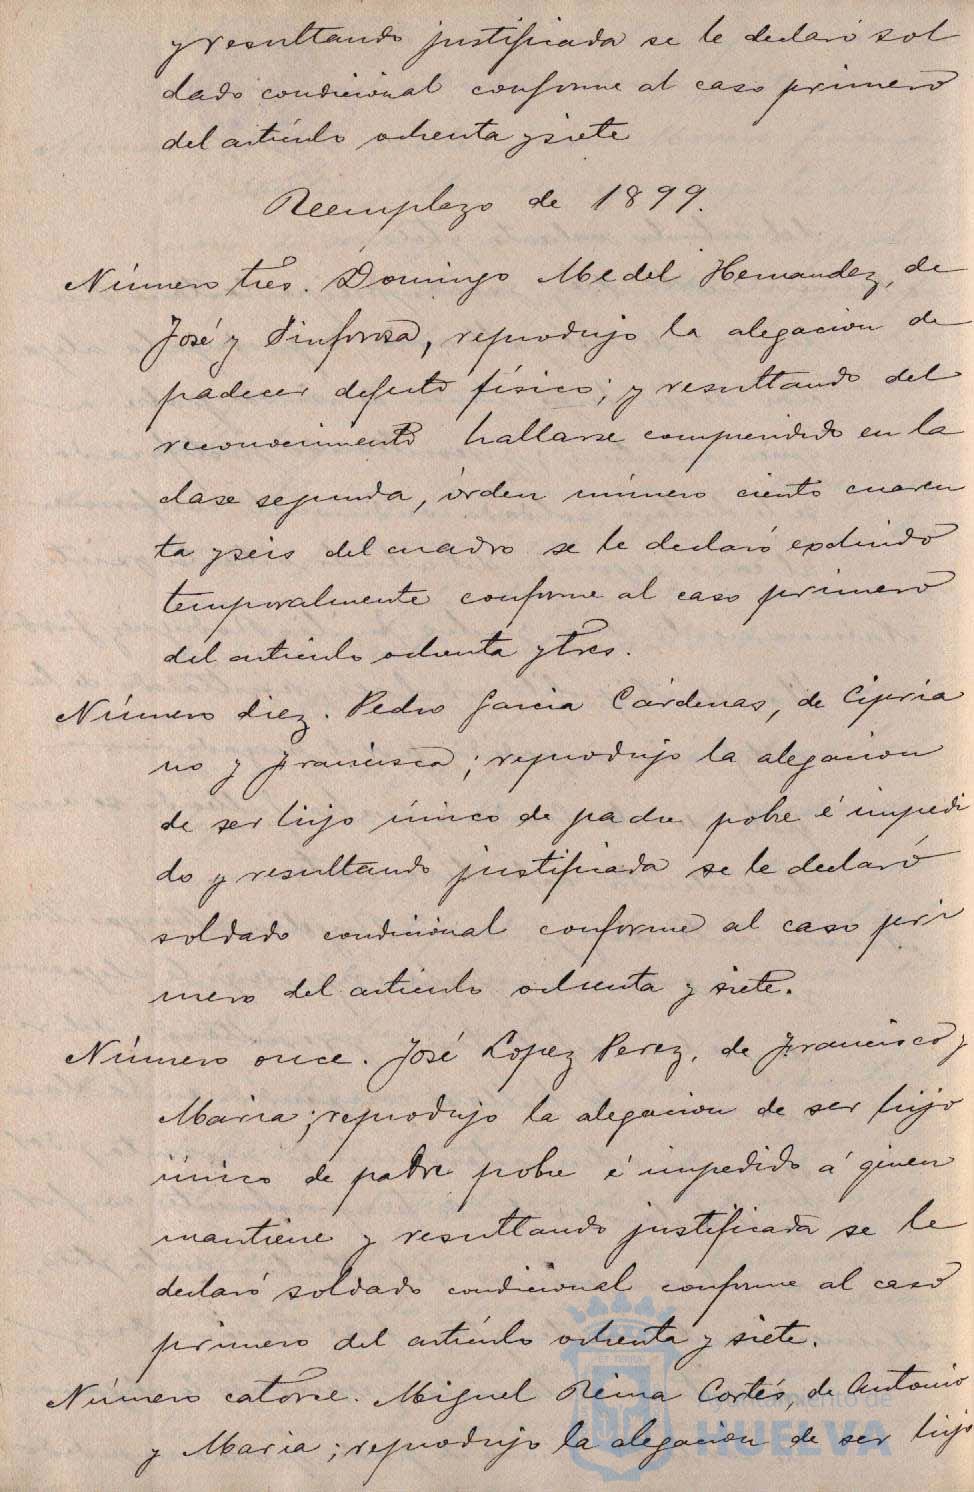 y resultando justificada se le declaró sol
dado condicional conforme al caso primero
del artículo ochenta y siete
Reemplazo de 1899.
Número trés. Domingo Medel Hernandez, de
José y Sinforosa, reprodujo la alegacion de
padecer defecto físico; y resultando del
reconocimiento hallarse comprendido en la
clase segunda, órden número ciento cuaren
ta y seis del cuadro se le declaró excluido
temporalmente conforme al caso primero
del artículo ochenta y tres.
Número diez. Pedro Garcia Cárdenas, de Cipria
no y Francisca; reprodujo la alegacion
de ser hijo único de padre pobre é impedi
do y resultando justificada se le declaró
soldado condicional conforme al caso pri
mero del artículo ochenta y siete.
Número once. José Lopez Perez, de Francisco y
Maria; reprodujo la alegacion de ser hijo
único de padre pobre é impedido á quien
mantiene y resultando justificada se le
declaró soldado condicional conforme al caso
primero del artículo ochenta y siete.
Número catorce. Miguel Reina Cortés, de Antonio
y Maria; reprodujo la alegacion de ser hijo
Ayuntamiento de
HUELVA